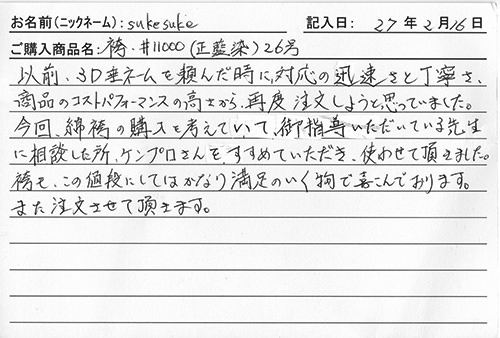 お名前(ニックネーム):sukesuke 記入日: 27年2月16日
ご購入商品名:袴・#11000(正藍染)26号
以前、3D垂ネームを頼んだ時に、対応の迅速さと丁寧さ、
商品のコストパフォーマンスの高さから、再度注文しようと思っていました。
今回、綿袴の購入を考えていて、御指導いただいている先生
に相談した所、ケンプロさんをすすめていただき、使わせて頂きました。
袴も、この値段にしてはかなり満足のいく物で喜こんでおります。
また注文させて頂きます。